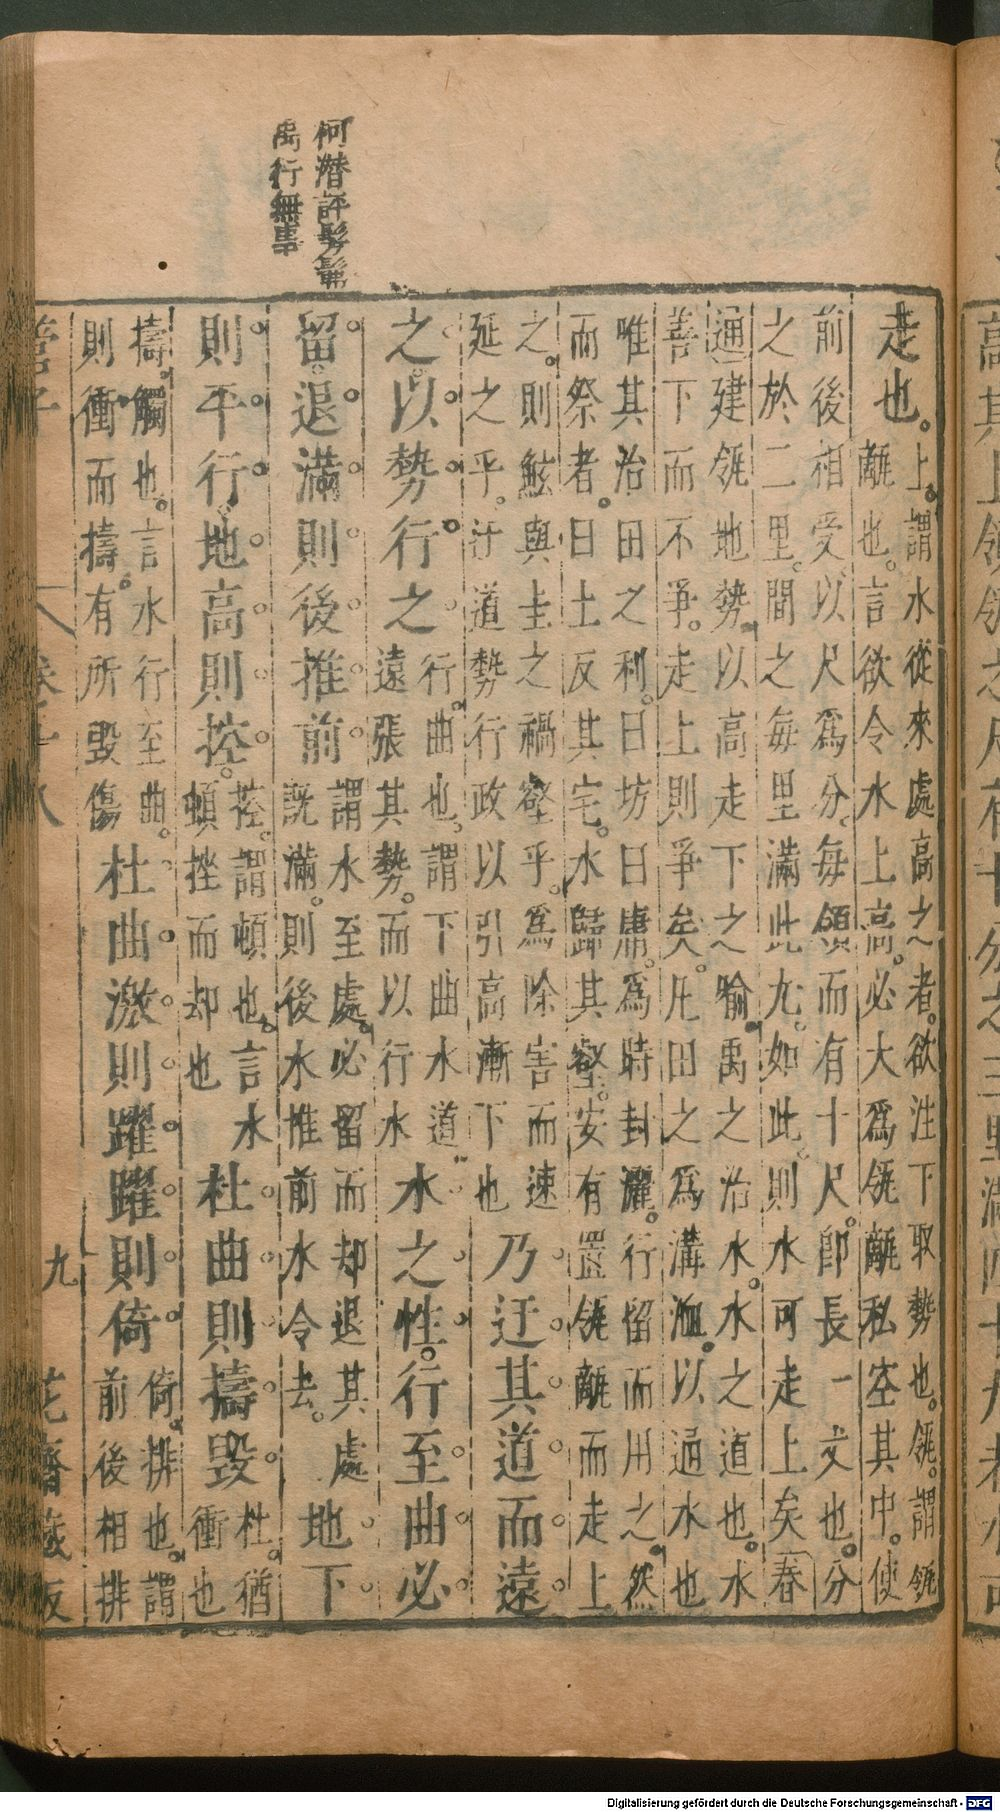 柯潛評髣髴
禹行無事
走也。
上。謂水從來處高之者。欲注下取勢也。瓴。謂瓴
離也。言欲令水上高。必大爲瓴離私空其中。使
前後相受。以尺爲分。每領而有十尺。卽長一丈也。分
之於二里。間之每里滿此九。如此。則水可走上矣春
通建瓴地勢。以高走下之喻。禹之治水。水之道也。水
善下而不爭。走上則爭矣。凡田之爲溝洫。以通水也
唯其治田之利。曰坊曰庸。爲時封灑。行留而用之。然
而祭者。曰土反其宅。水歸其壑。安有置瓴離而走上
之。則鯀與圭之禍壑乎。爲除害而速
延之乎。汙道勢行政以引高漸下也
乃迂其道而遠
之。以勢行之
行。曲也。謂下曲水道
遠張其勢。而以行水
水之性。行至曲必
留。退滿則後推前
謂水至處。必留而却退其處
既滿。則後水推前水令去。
地下
則平行。地高則控。
控。謂頓也。言水
頓挫而却也
杜曲則擣毀
杜猶
衝也
擣。觸也。言水行至曲。
則衝而擣。有所毀傷
杜曲激則躍躍則倚
倚。排也。謂
前後相排
管子
九
花齋藏板
Digitalisierung gefördert durch die Deutsche Forschungsgemeinschaft - DFG